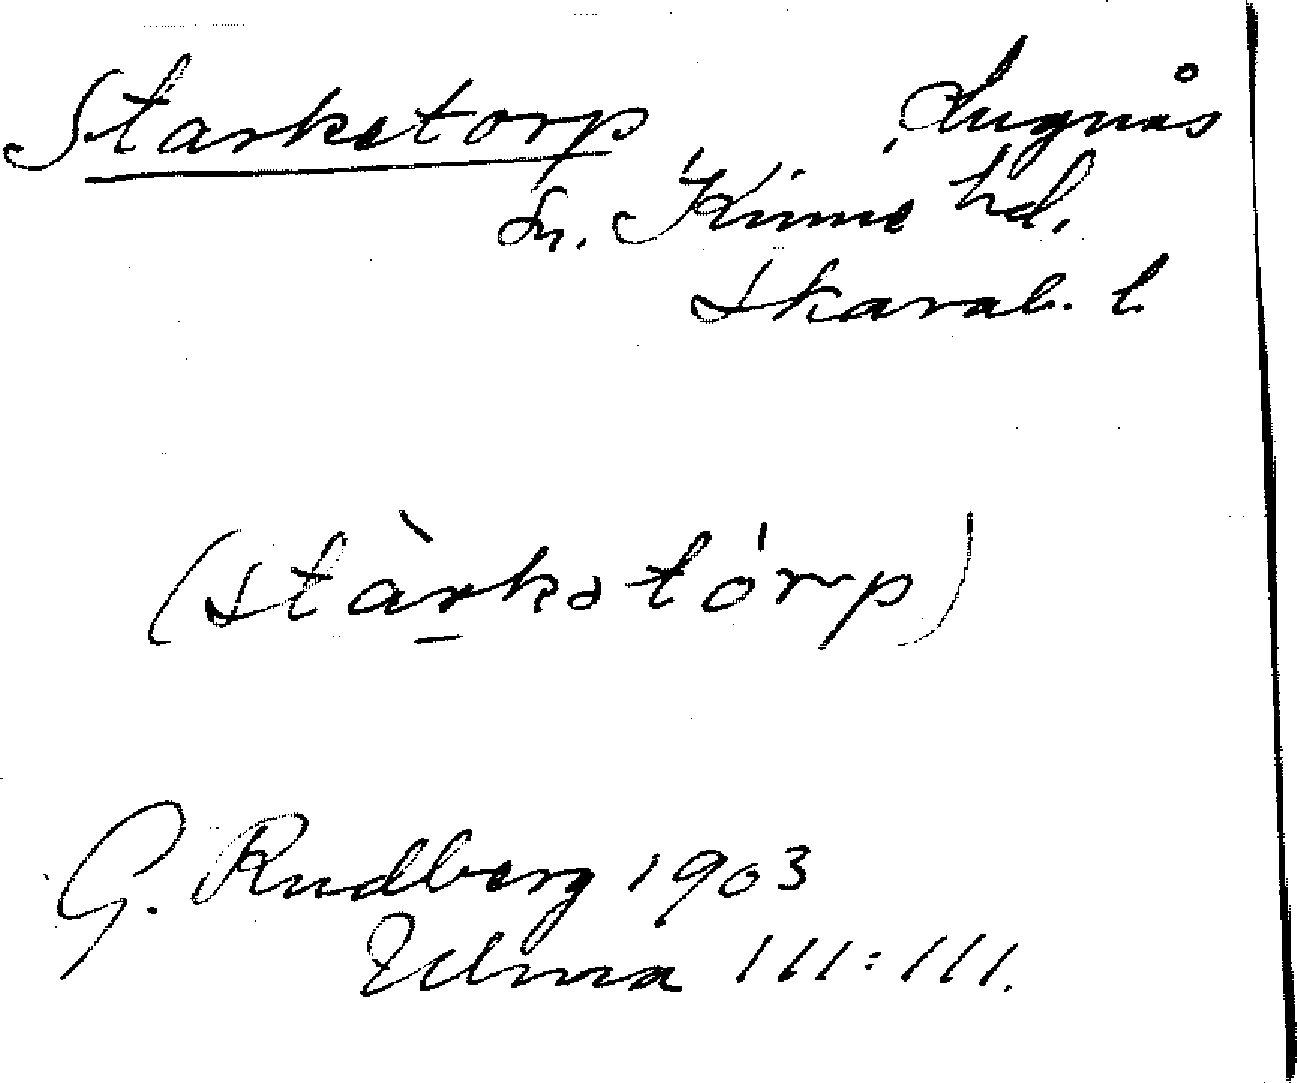 Starketorp Lugnås
sn. Kinne hd.
Skarab. l.
(stàrkətórp)
G. Rudberg 1903
Ulma 111:111.